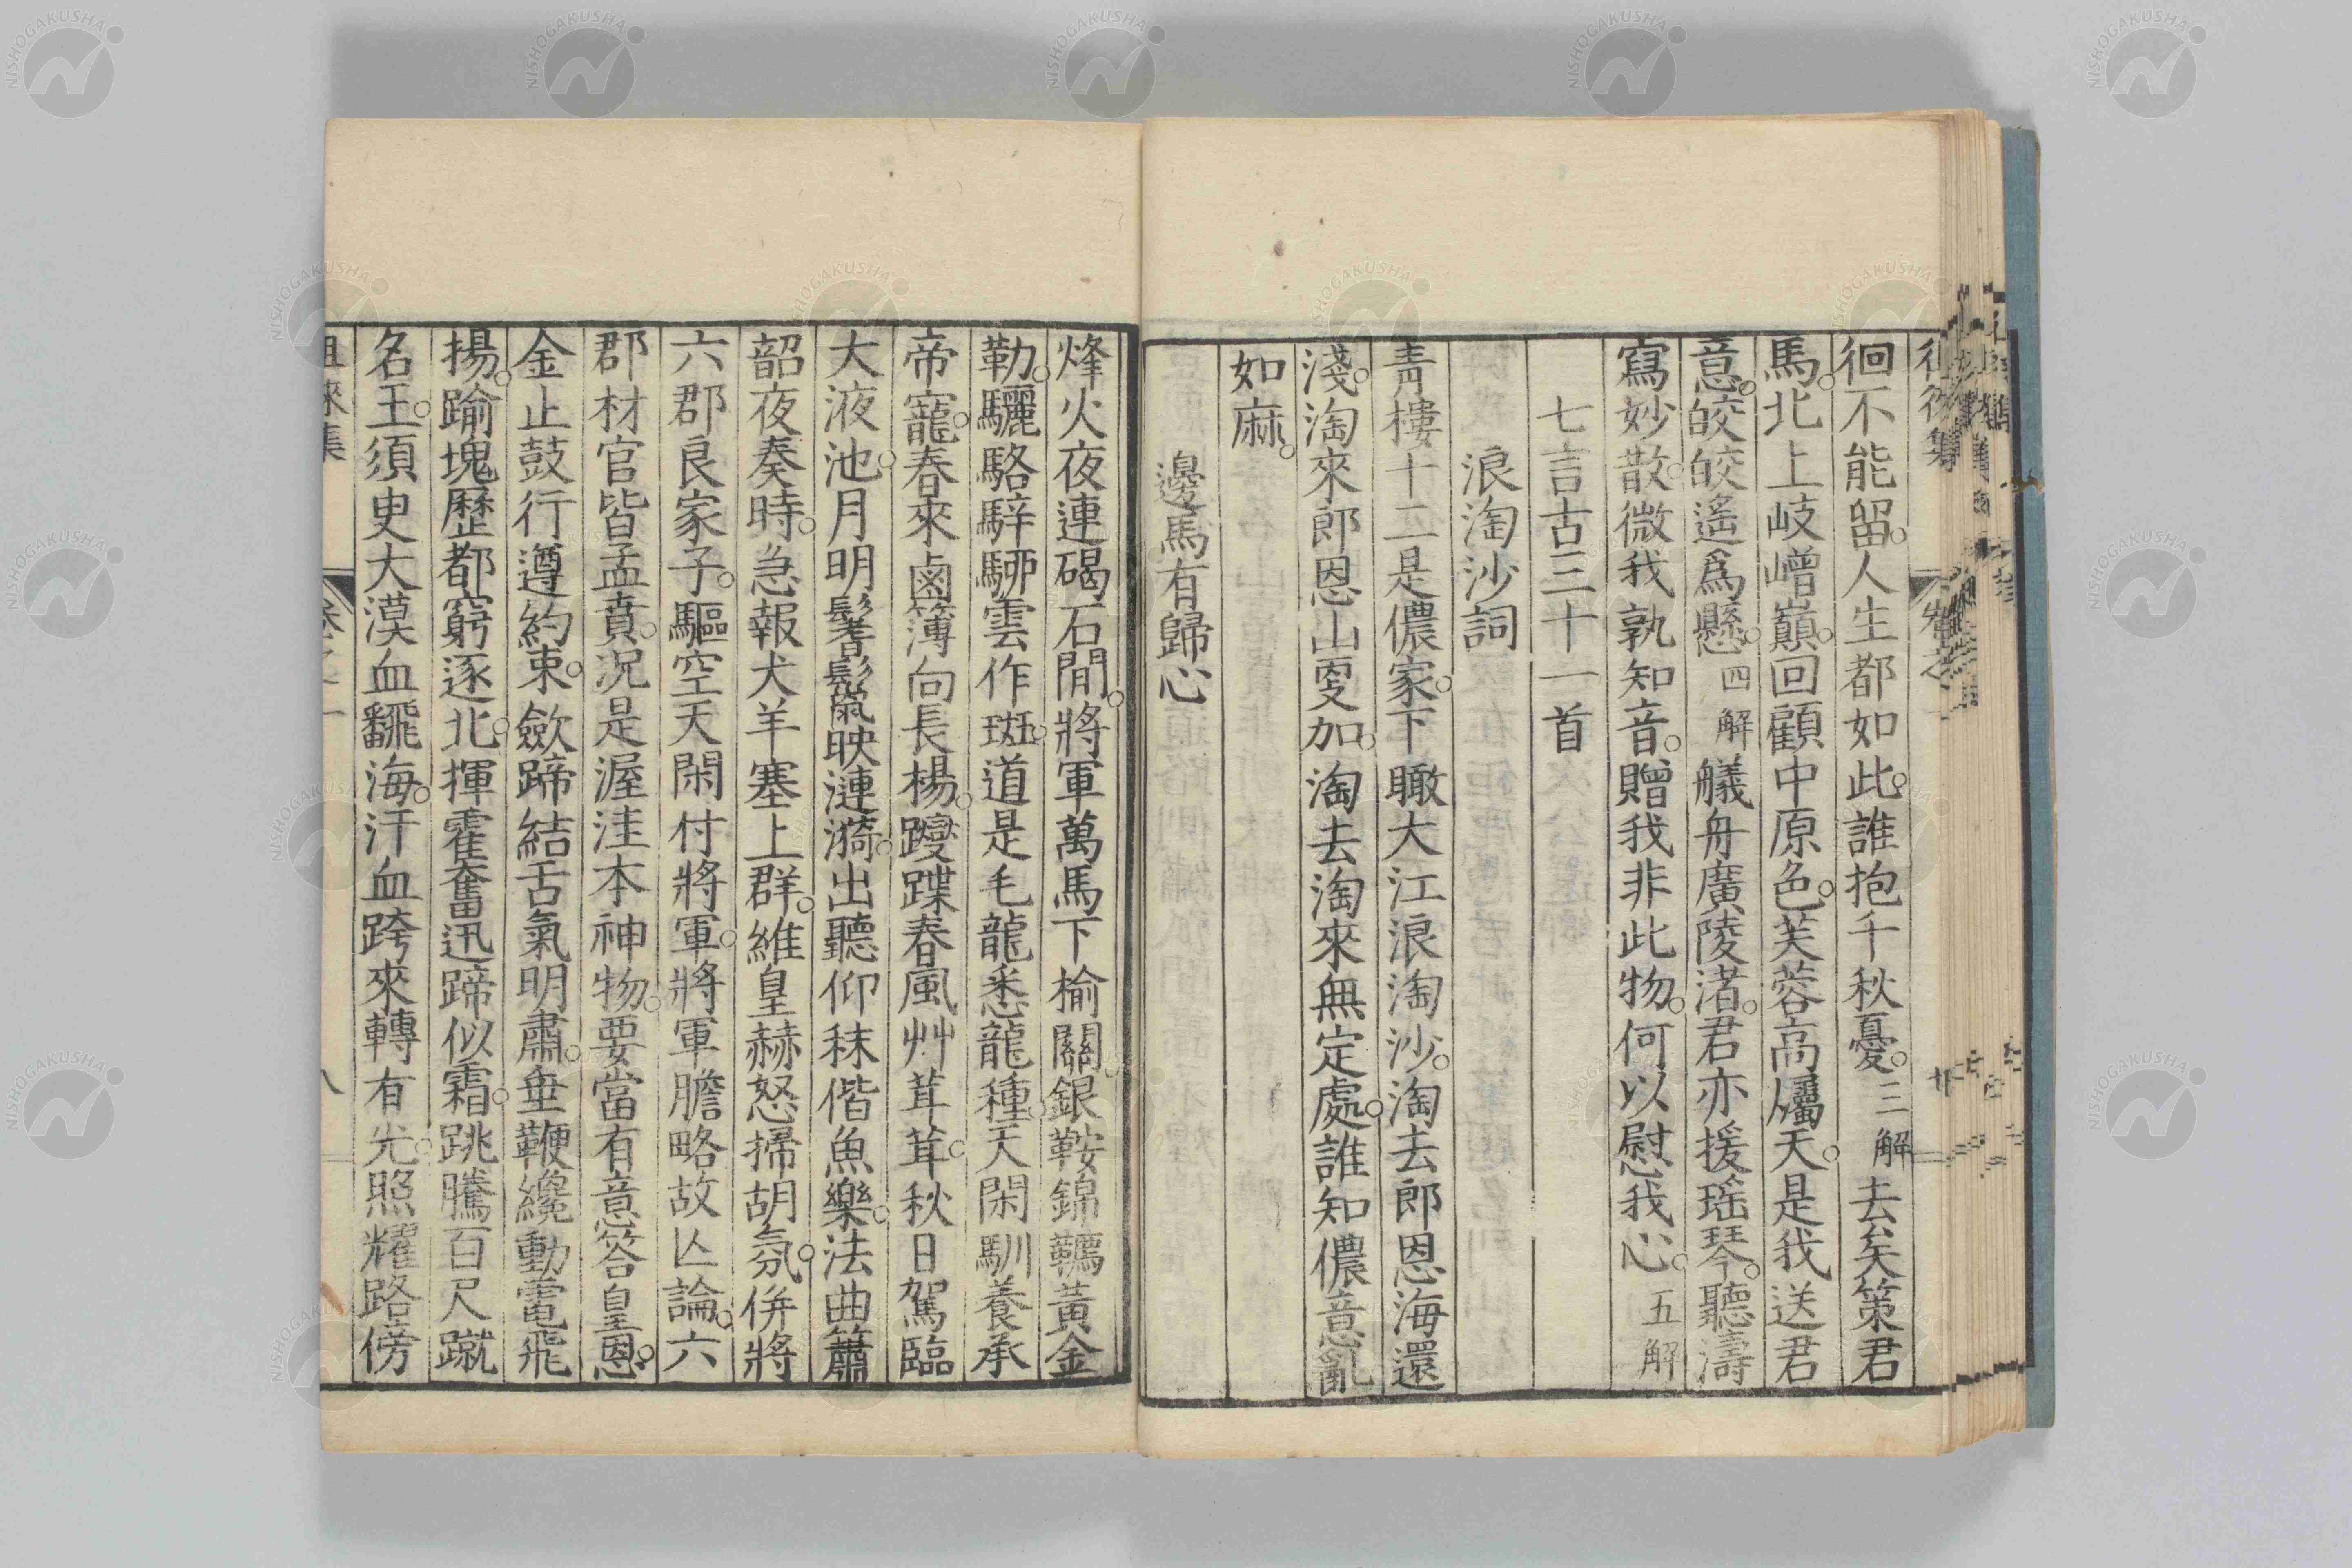 徊不能留。人生都如此。誰抱千秋憂。三解去矣策君
馬。北上岐嶒巔。回顧中原色。芙蓉高屬天。是我送君
意。皎皎遙爲懸。四解艤舟廣陵渚。君亦援瑤琴。聽濤
寫妙散。微我孰知音。贈我非此物。何以慰我心。五解
七言古三十一首
浪淘沙詞
靑樓十二是儂家。下瞰大江浪淘沙。淘去郎恩海還
淺。淘來郎恩山更加。淘去淘來無定處。誰知儂意亂
如麻。
邊馬有歸心
烽火夜連碣石間。將軍萬馬下榆關。銀鞍錦韉黃金
勒。驪駱騂駵雲作斑。道是毛龍悉龍種。天閑馴養承
帝寵。春來鹵簿向長楊。躞蹀春風艸茸茸。秋日駕臨
大液池。月明鬐鬣映漣漪。出聽仰秣偕魚樂。法曲簫
韶夜奏時。急報犬羊塞上群。維皇赫怒掃胡氛。併將
六郡良家子。驅空天閑付將軍。將軍膽略故亾論。六
郡材官皆孟賁。況是渥洼本神物。要當有意答皇恩。
金止鼓行遵約束。歛蹄結舌氣明肅。垂鞭纔動電飛
揚。踰塊歷都窮逐北。揮霍奮迅蹄似霜。跳騰百尺蹴
名王。須史大漠血飜海。汗血跨來轉有光。照耀路傍
徂徠集
卷之一
八
NISHOGAKUSHA